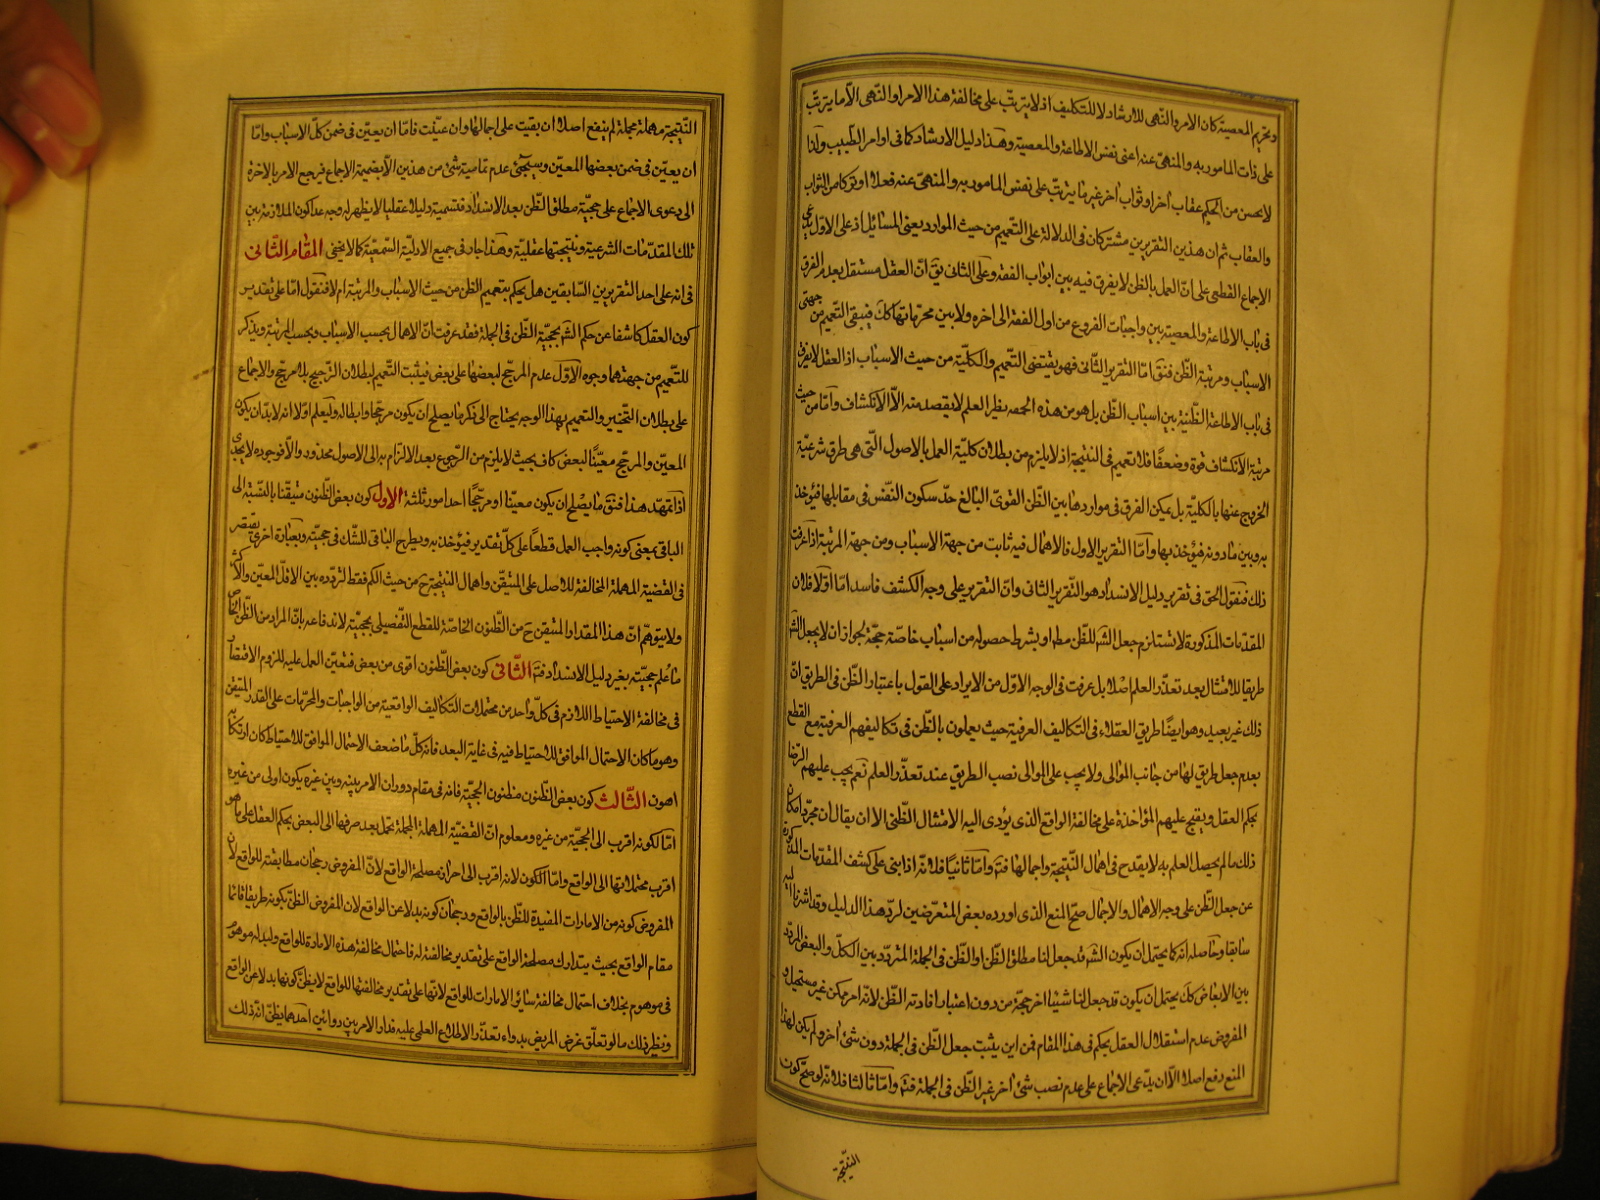 وتحريم المعصية كان الامر والنهى للارشاد لا للتكليف اذ لا يترتب على مخالفة هذا الامر والنهى الا ما يترتب
على ذات المامور به والمنهى عنه اعنى نفس الاطاعة والمعصية وهذا دليل الارشاد كما فى اوامر الطبيب ولذا
لا يحسن من الحكيم عقاب آخر او ثواب آخر غير ما يترتب على نفس المامور به والمنهى عنه فعلا او تركا من الثواب
والعقاب ثم ان هذين التقريرين مشتركان فى الدلالة على التعميم من حيث الموارد يعنى المسائل اذ على الاول يدعى
الاجماع القطعى على ان العمل بالظن لا يفرق فيه بين ابواب الفقه وعلى الثانى يق ان العقل مستقل بعدم الفرق
فى باب الاطاعة والمعصية بين واجبات الفروع من اول الفقه الى اخره ولا بين محرماتها كك فيبقى التعميم من جهتى
الاسباب ومرتبة الظن فنق اما التقرير الثانى فهو يقتضى التعميم والكلية من حيث الاسباب اذ العقل لا يفرق
فى باب الاطاعة الظنية بين اسباب الظن بل هو من هذه الجهة نظر العلم لا يقصد منه الا الانكشاف واما من حيث
مرتبة الانكشاف قوة وضعفا فلا تعميم فى النتيجة اذ لا يلزم من بطلان كلية العمل بالاصول التى هى طرق شرعية
الخروج عنها بالكلية بل يمكن الفرق فى مواردها بين الظن القوى البالغ حد سكون النفس فى مقابلها فيؤخذ
به وبين ما دونه فيؤخذ بها واما التقرير الاول فالاهمال فيه ثابت من جهة الاسباب ومن جهة المرتبة اذا عرفت
ذلك فنقول الحق فى تقرير دليل الانسداد هو التقرير الثانى وان التقرير على وجه الكشف فاسد اما اولا فلان
المقدمات المذكورة لا تستلزم جعل الشه للظن مطا او بشرط حصوله من اسباب خاصة حجة لجواز ان لا يجعل الشه
طريقا للامتثال بعد تعذر العلم اصلا بل عرفت فى الوجه الاول من الايراد على القول باعتبار الظن فى الطريق ان
ذلك غير بعيد وهو ايضا طريق العقلاء فى التكاليف العرفية حيث يعملون بالظن فى تكاليفهم العرفية مع القطع
بعدم جعل طريق لها من جانب الموالى ولا يجب على الموالى نصب الطريق عند تعذر العلم نعم يجب عليهم الرضا
بحكم العقل ويقبح عليهم المؤاخذة على مخالفة الواقع الذى يؤدى اليه الامتثال الظنى الا ان يقال ان مجرد امكان
ذلك ما لم يحصل العلم به لا يقدح فى اهمال النتيجة واجمالها فتم واما ثانيا فلانه اذا بنى على كشف المقدمات المذكورة
عن جعل الظن على وجه الاهمال والاجمال صح المنع الذى اورده بعض المتعرضين لرد هذا الدليل وقد اشرنا اليه
سابقا وحاصله انه كما يحتمل ان يكون الشه قد جعل لنا مطلق الظن او الظن فى الجملة المتردد بين الكل والبعض المردد
بين الابعاض كك يحتمل ان يكون قد جعل لنا شيئا اخر حجة من دون اعتبار افادته الظن لانه امر ممكن غير مستحيل و
المفروض عدم استقلال العقل بحكم فى هذا المقام فمن اين يثبت جعل الظن فى الجملة دون شئ اخر ولم يكن لهذا
المنع دفع اصلا الا ان يدعى الاجماع على عدم نصب شئ اخر غير الظن فى الجملة فتم واما ثالثا فلانه لو صح كون
النتيجة
النتيجة مهملة مجملة لم ينفع اصلا ان بقيت على اجمالها وان عينت فاما ان يعين فى ضمن كل الاسباب واما
ان يعين فى ضمن بعضها المعين وسيجئ عدم تمامية شئ من هذين الا بضميمة الاجماع فيرجع الامر بالاخرة
الى دعوى الاجماع على حجية مطلق الظن بعد الانسداد فتسمية دليلا عقليا لا يظهر له وجه عدا كون الملازمة بين
تلك المقدمات الشرعية ونتيجتها عقلية وهذا جار فى جميع الادلة السمعية كما لا يخفى المقام الثانى
فى انه على احد التقريرين السابقين هل يحكم بتعميم الظن من حيث الاسباب والمرتبة ام لا فنقول اما على تقدير
كون العقل كاشفا عن حكم الشه بحجية الظن فى الجملة فقد عرفت ان الاهمال بحسب الاسباب وبحسب المرتبة ويذكر
للتعميم من جهتهما وجوه الاول عدم المرجح لبعضها على بعض فيثبت التعميم لبطلان الترجيح بلا مرجح والاجماع
على بطلان التخيير والتعميم بهذا الوجه يحتاج الى ذكر ما يصلح ان يكون مرجحا وابطاله وليعلم اولا انه لا بد ان يكون
المعين والمرجح معينا لبعض كاف بحيث لا يلزم من الرجوع بعد الالتزام به الى الاصول محذور والا فوجوده لا يجدى
اذا تمهد هذا فنق ما يصلح ان يكون معينا او مرجحا احد امور ثلثة الاول كون بعض الظنون متيقنا بالنسبة الى
الباقى بمعنى كونه واجب العمل قطعا على كل تقدير فيؤخذ به ويطرح الباقى للشك فى حجيته وبعبارة اخرى يقتصر
فى القضية المهملة المخالفة للاصل على المتيقن واهمال النتيجة ح من حيث الكم فقط لتردده بين الاقل المعين والاكثر
ولا يتوهم ان هذا المقدار المتيقن ح من الظنون الخاصة للقطع التفصيلى بحجيته لاندفاعه بان المراد من الظن الخاص
ما علم حجيته بغير دليل الانسداد فتم الثانى كون بعض الظنون اقوى من بعض فتعين العمل عليه للزوم الاقتصار
فى مخالفة الاحتياط اللازم فى كل واحد من محتملات التكاليف الواقعية من الواجبات والمحرمات على القدر المتيقن
وهو ما كان الاحتمال الموافق للاحتياط فيه فى غاية البعد فانه كلما ضعف الاحتمال الموافق للاحتياط كان ارتكابه
اهون الثالث كون بعض الظنون مظنون الحجية فانه فى مقام دوران الامر بينه وبين غيره يكون اولى من غيره
اما لكونه اقرب الى الحجية من غيره ومعلوم ان القضية المهملة المجملة تحمل بعد صرفها الى البعض بحكم العقل على ما هو
اقرب محتملاتها الى الواقع واما لكونه اقرب الى احراز مصلحة الواقع لان المفروض رجحان مطابقته للواقع لان
المفروض كونه من الامارات المفيدة للظن بالواقع ورجحان كونه بدلا عن الواقع لان المفروض الظن بكونه طريقا قائما
مقام الواقع بحيث يتدارك مصلحة الواقع على تقدير مخالفته له فاحتمال مخالفة هذه الامارة للواقع ولبدله موهوم
فى موهوم بخلاف احتمال مخالفة سائر الامارات للواقع لانها على تقدير مخالفتها للواقع لا يظن كونها بدلا عن الواقع
ونظير ذلك ما لو تعلق غرض المريض بدواء تعذر الاطلاع العلمى عليه فدار الامر بين دوائين احدهما يظن انه ذلك